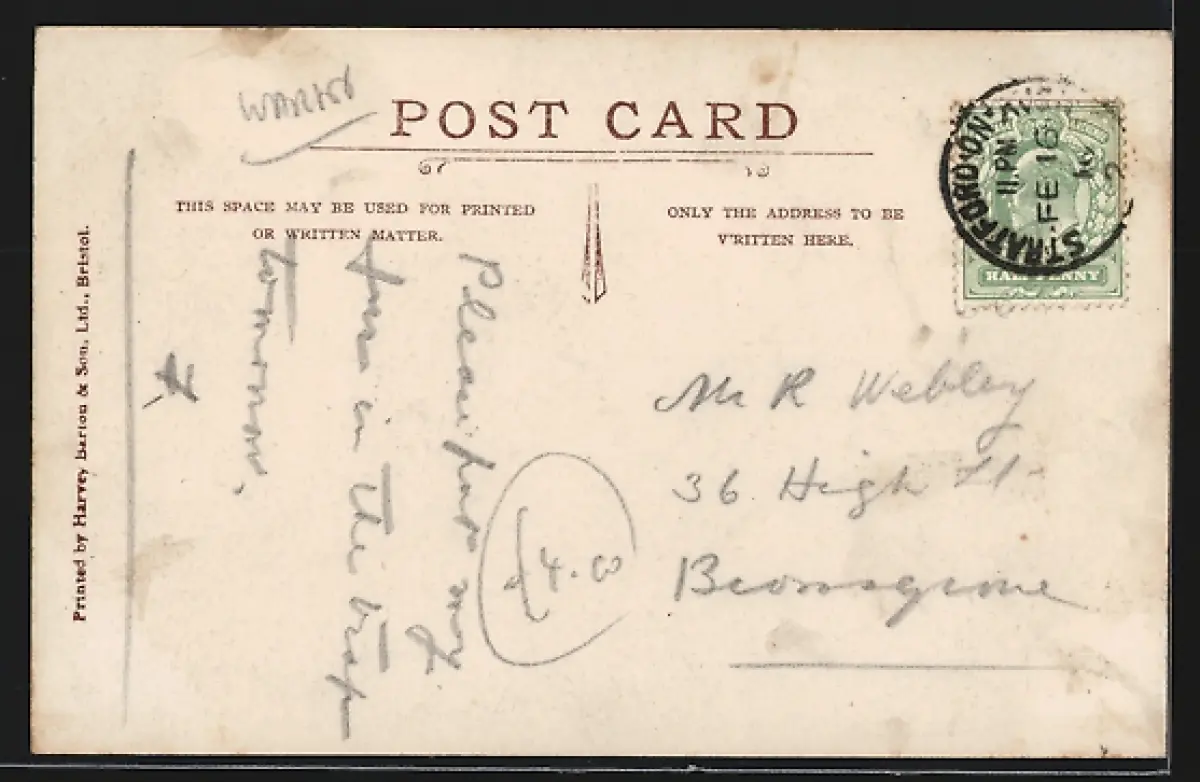 POST CARD
THIS SPACE MAY BE USED FOR PRINTED
OR WRITTEN MATTER.
ONLY THE ADDRESS TO BE
WRITTEN HERE.
STRATFORD-ON-
11 PM
FE 16
10
HALF PENNY
Printed by Harvey Barton & Son, Ltd., Bristol.
Please put my
in the trap
tomorrow.
Mr R Webley
36 High St
Bromsgrove
£4.00